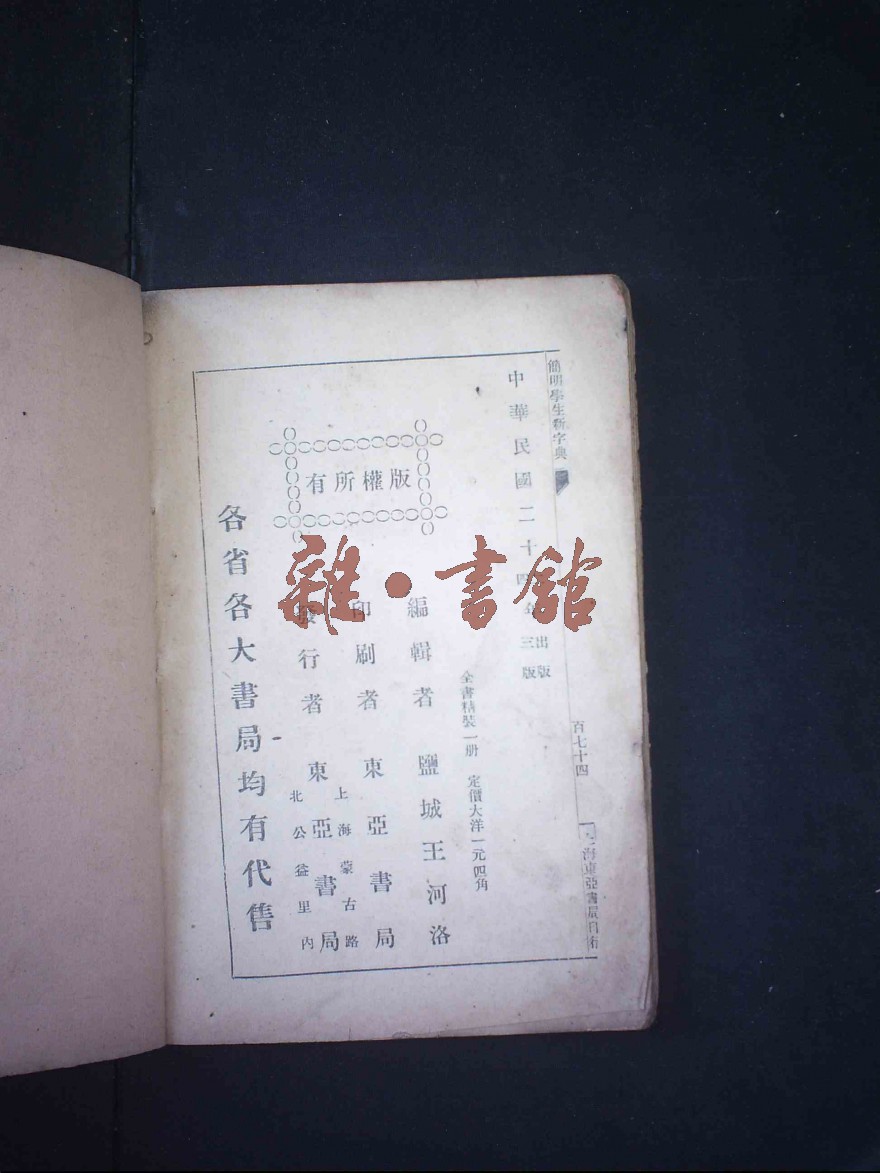 簡明學生新字典
百七十四
上海東亞書局印行
中華民國二十四年
出版
三版
版權所有
全書精裝一册 定價大洋一元四角
編輯者 鹽城王河洛
印刷者 東亞書局
發行者 東亞書局
上海蒙古路
北公益里內
各省各大書局均有代售
雜·書館